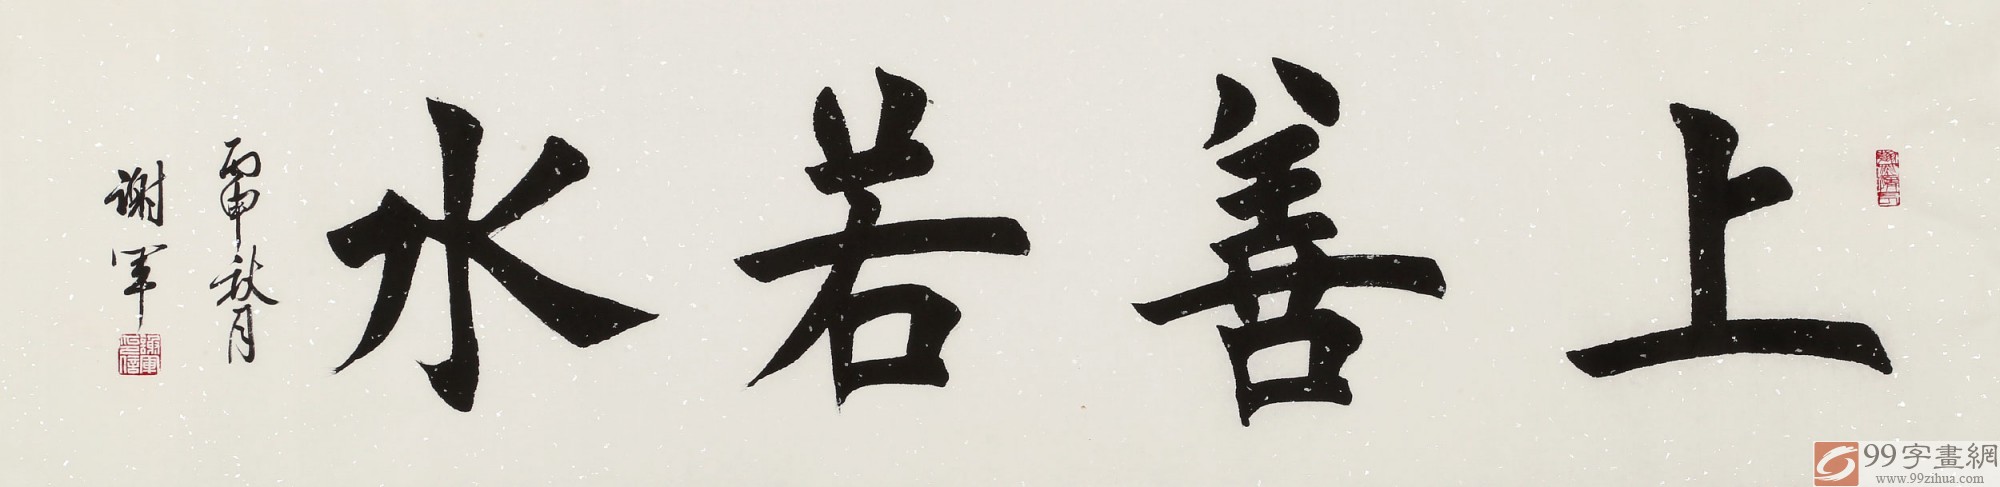 上善若水
丙申秋月
谢军
謝軍
99字畫網
www.99zihua.com